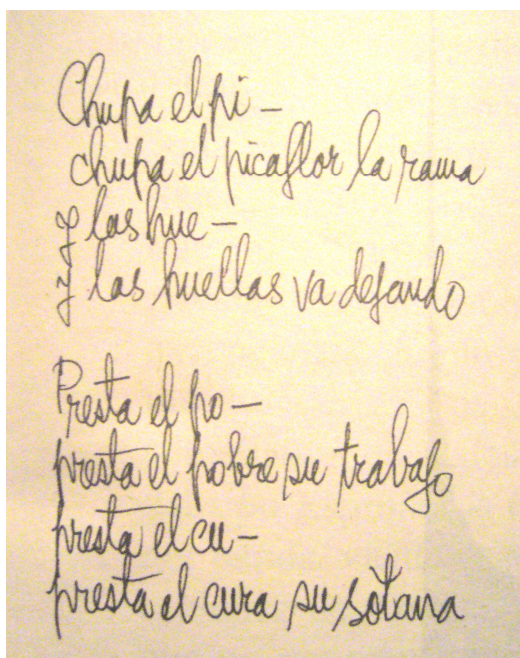 Chupa el pi-
chupa el picaflor la rama
y las hue-
y las huellas va dejando
Presta el po-
presta el pobre su trabajo
presta el cu-
presta el cura su sotana